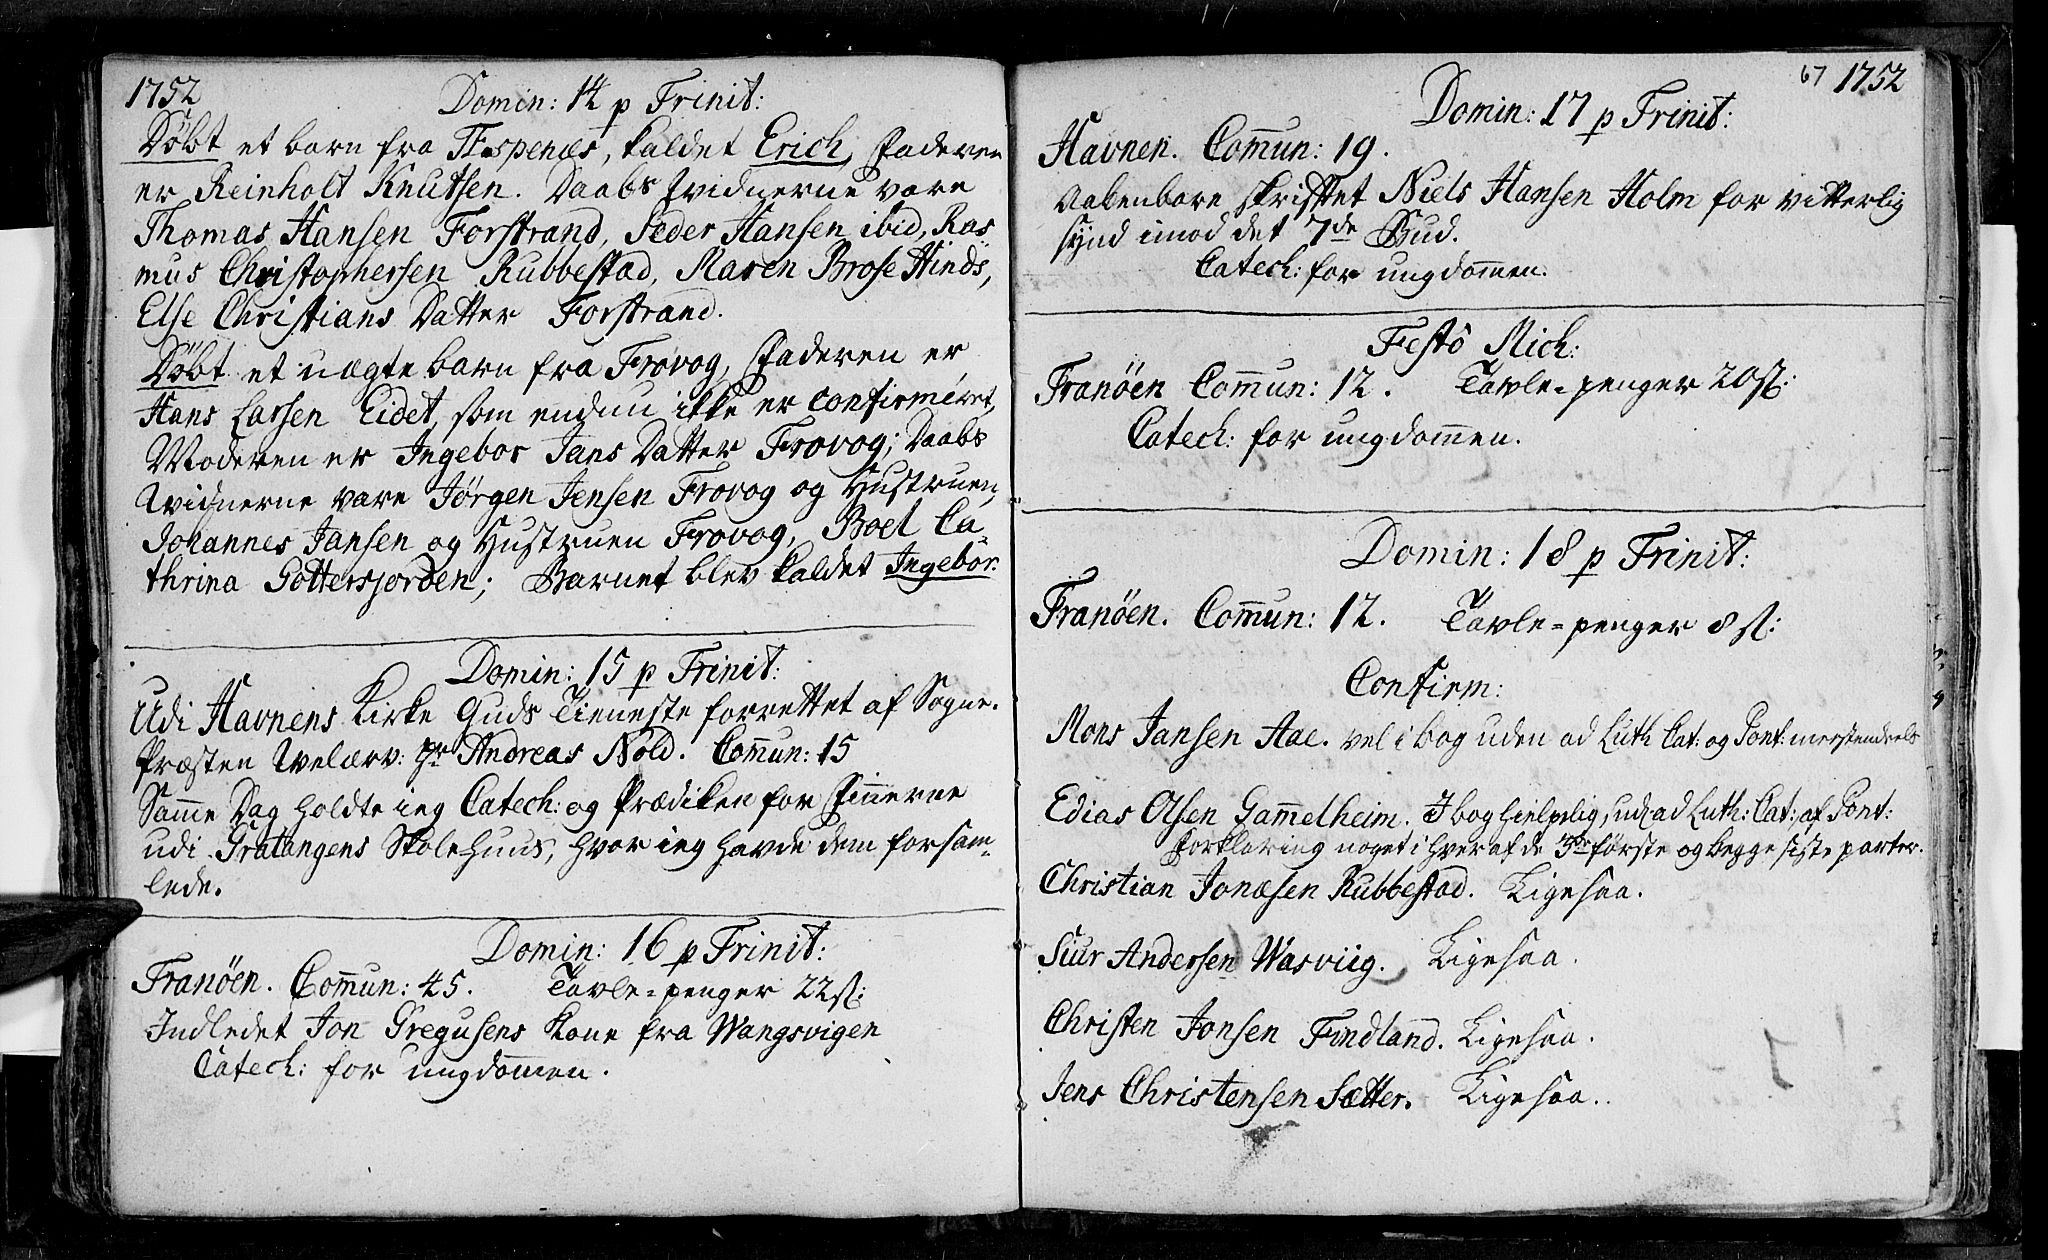 1752
Domin: 14 p Trinit:
Döbt et barn fra Espenæs, kaldet Erich, Faderen
er Reinholt Knutsen. Daabs Widnerne vare
Thomas Hansen Forstrand, Peder Hansen ibid, Ras
mus Christophersen Rubbestad, Maren Brose Hinds,
Else Christians Datter Forstrand.
Döbt et uægte barn fra Frovog, Faderen er
Hans Larsen Eidet, som endnu ikke er confirmeret,
Moderen er Ingebor Jans Datter Frovog; Daabs
Widnerne vare Jörgen Jensen Frovog og Hustruen,
Johannes Jansen og Hustruen Frovog, Boel Ca-
thrina Gottersjorden; Barnet blev kaldet Ingebor.
Domin: 15 p Trinit:
Udi Havnens Kirke Guds Tieneste forrettet af Sogne-
Præsten Welærv: Hr Andreas Nold. Com̄un: 15
Sam̄e Dag holdte ieg Catech: og Prædiken for Fin̄erne
udi Gratangens Skolehuus, hvor ieg havde dem forsam-
lede.
Domin: 16 p Trinit:
Tranöen. Com̄un: 45. Tavle-penger 22 sl:
Indledet Jon Gregusens Kone fra Wangsvigen
Catech: for ungdom̄en.
67 1752
Domin: 17 p Trinit:
Havnen. Com̄un: 19.
Aabenbare skriftet Niels Hansen Holm for vitterlig
synd imod det 7de Bud.
Catech: for ungdom̄en.
Festô Mich:
Tranöen Com̄un: 12. Tavle-penger 20 sl:
Catech: for ungdom̄en.
Domin: 18 p Trinit:
Tranöen. Com̄un: 12. Tavle-penger 8 sl:
Confirm:
Mons Jansen Aae. vel i bog uden ad Luth Cat: og Pont: merstendeels
Edias Olsen Gam̄elheim. I bog hielpelig, ud ad Luth: Cat: af Pont:
Forklaring noget i hver af de 3de förste og begge siste parter.
Christian Jonæsen Rubbestad. Ligesaa.
Siur Andersen Wasviig. Ligesaa.
Christen Jonsen Findland. Ligesaa.
Jens Christensen Sætter. Ligesaa.